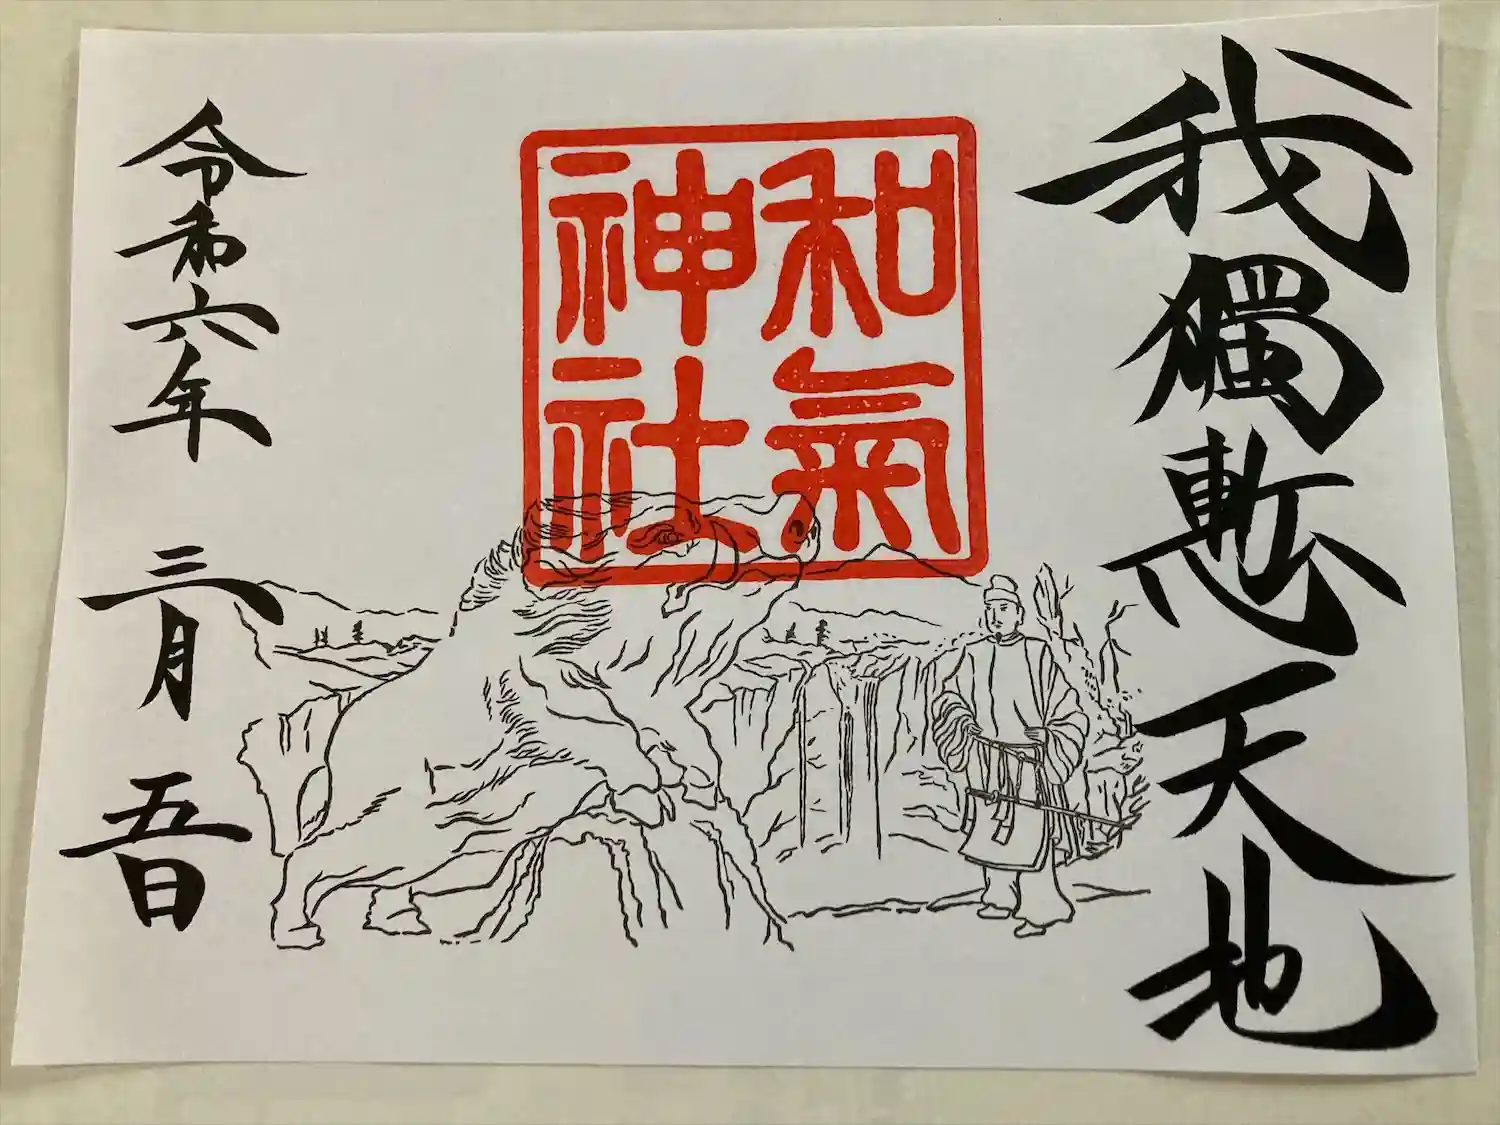 我獨慙天地
和氣
神社
令和六年三月五日